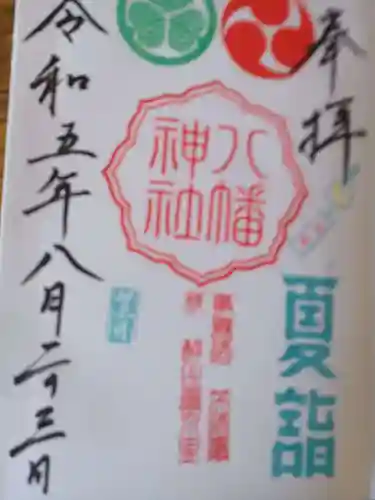 奉拝
夏詣
八幡
神社
令和五年八月二十三日